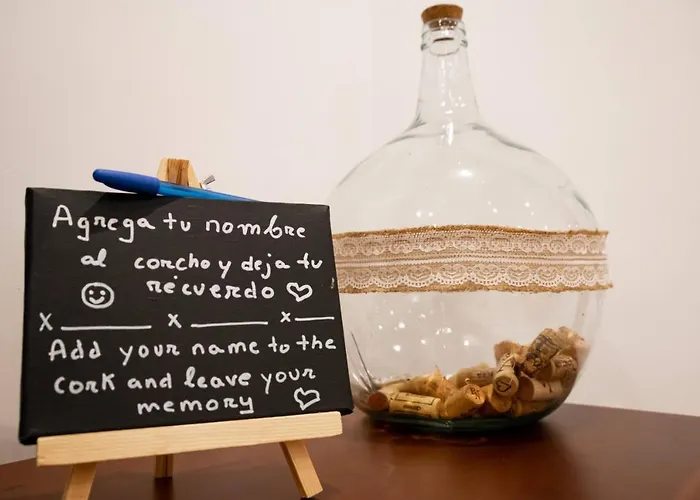 Agrega tu nombre
al corcho y deja tu
recuerdo
x x x
Add your name to the
cork and leave your
memory